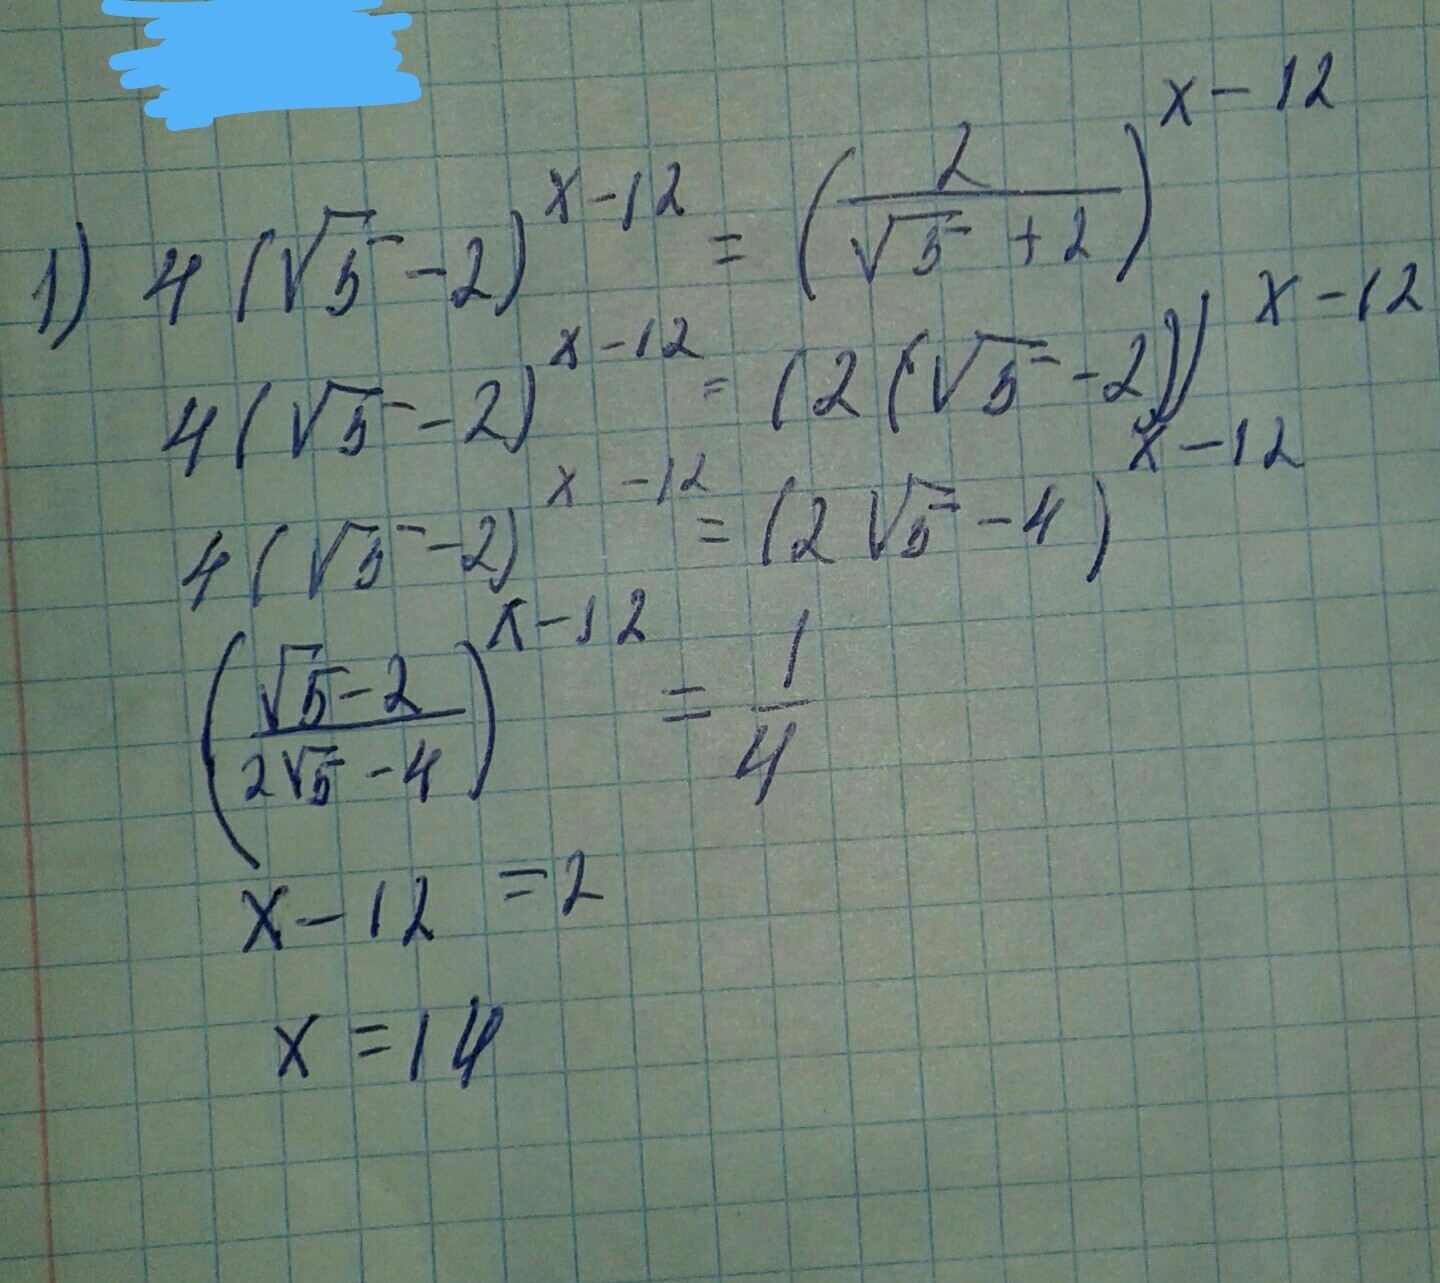 1) 4(√5-2)^(x-12) = (2/(√5+2))^(x-12)
4(√5-2)^(x-12) = (2(√5-2))^(x-12)
4(√5-2)^(x-12) = (2√5-4)^(x-12)
((√5-2)/(2√5-4))^(x-12) = 1/4
x-12 = 2
x = 14